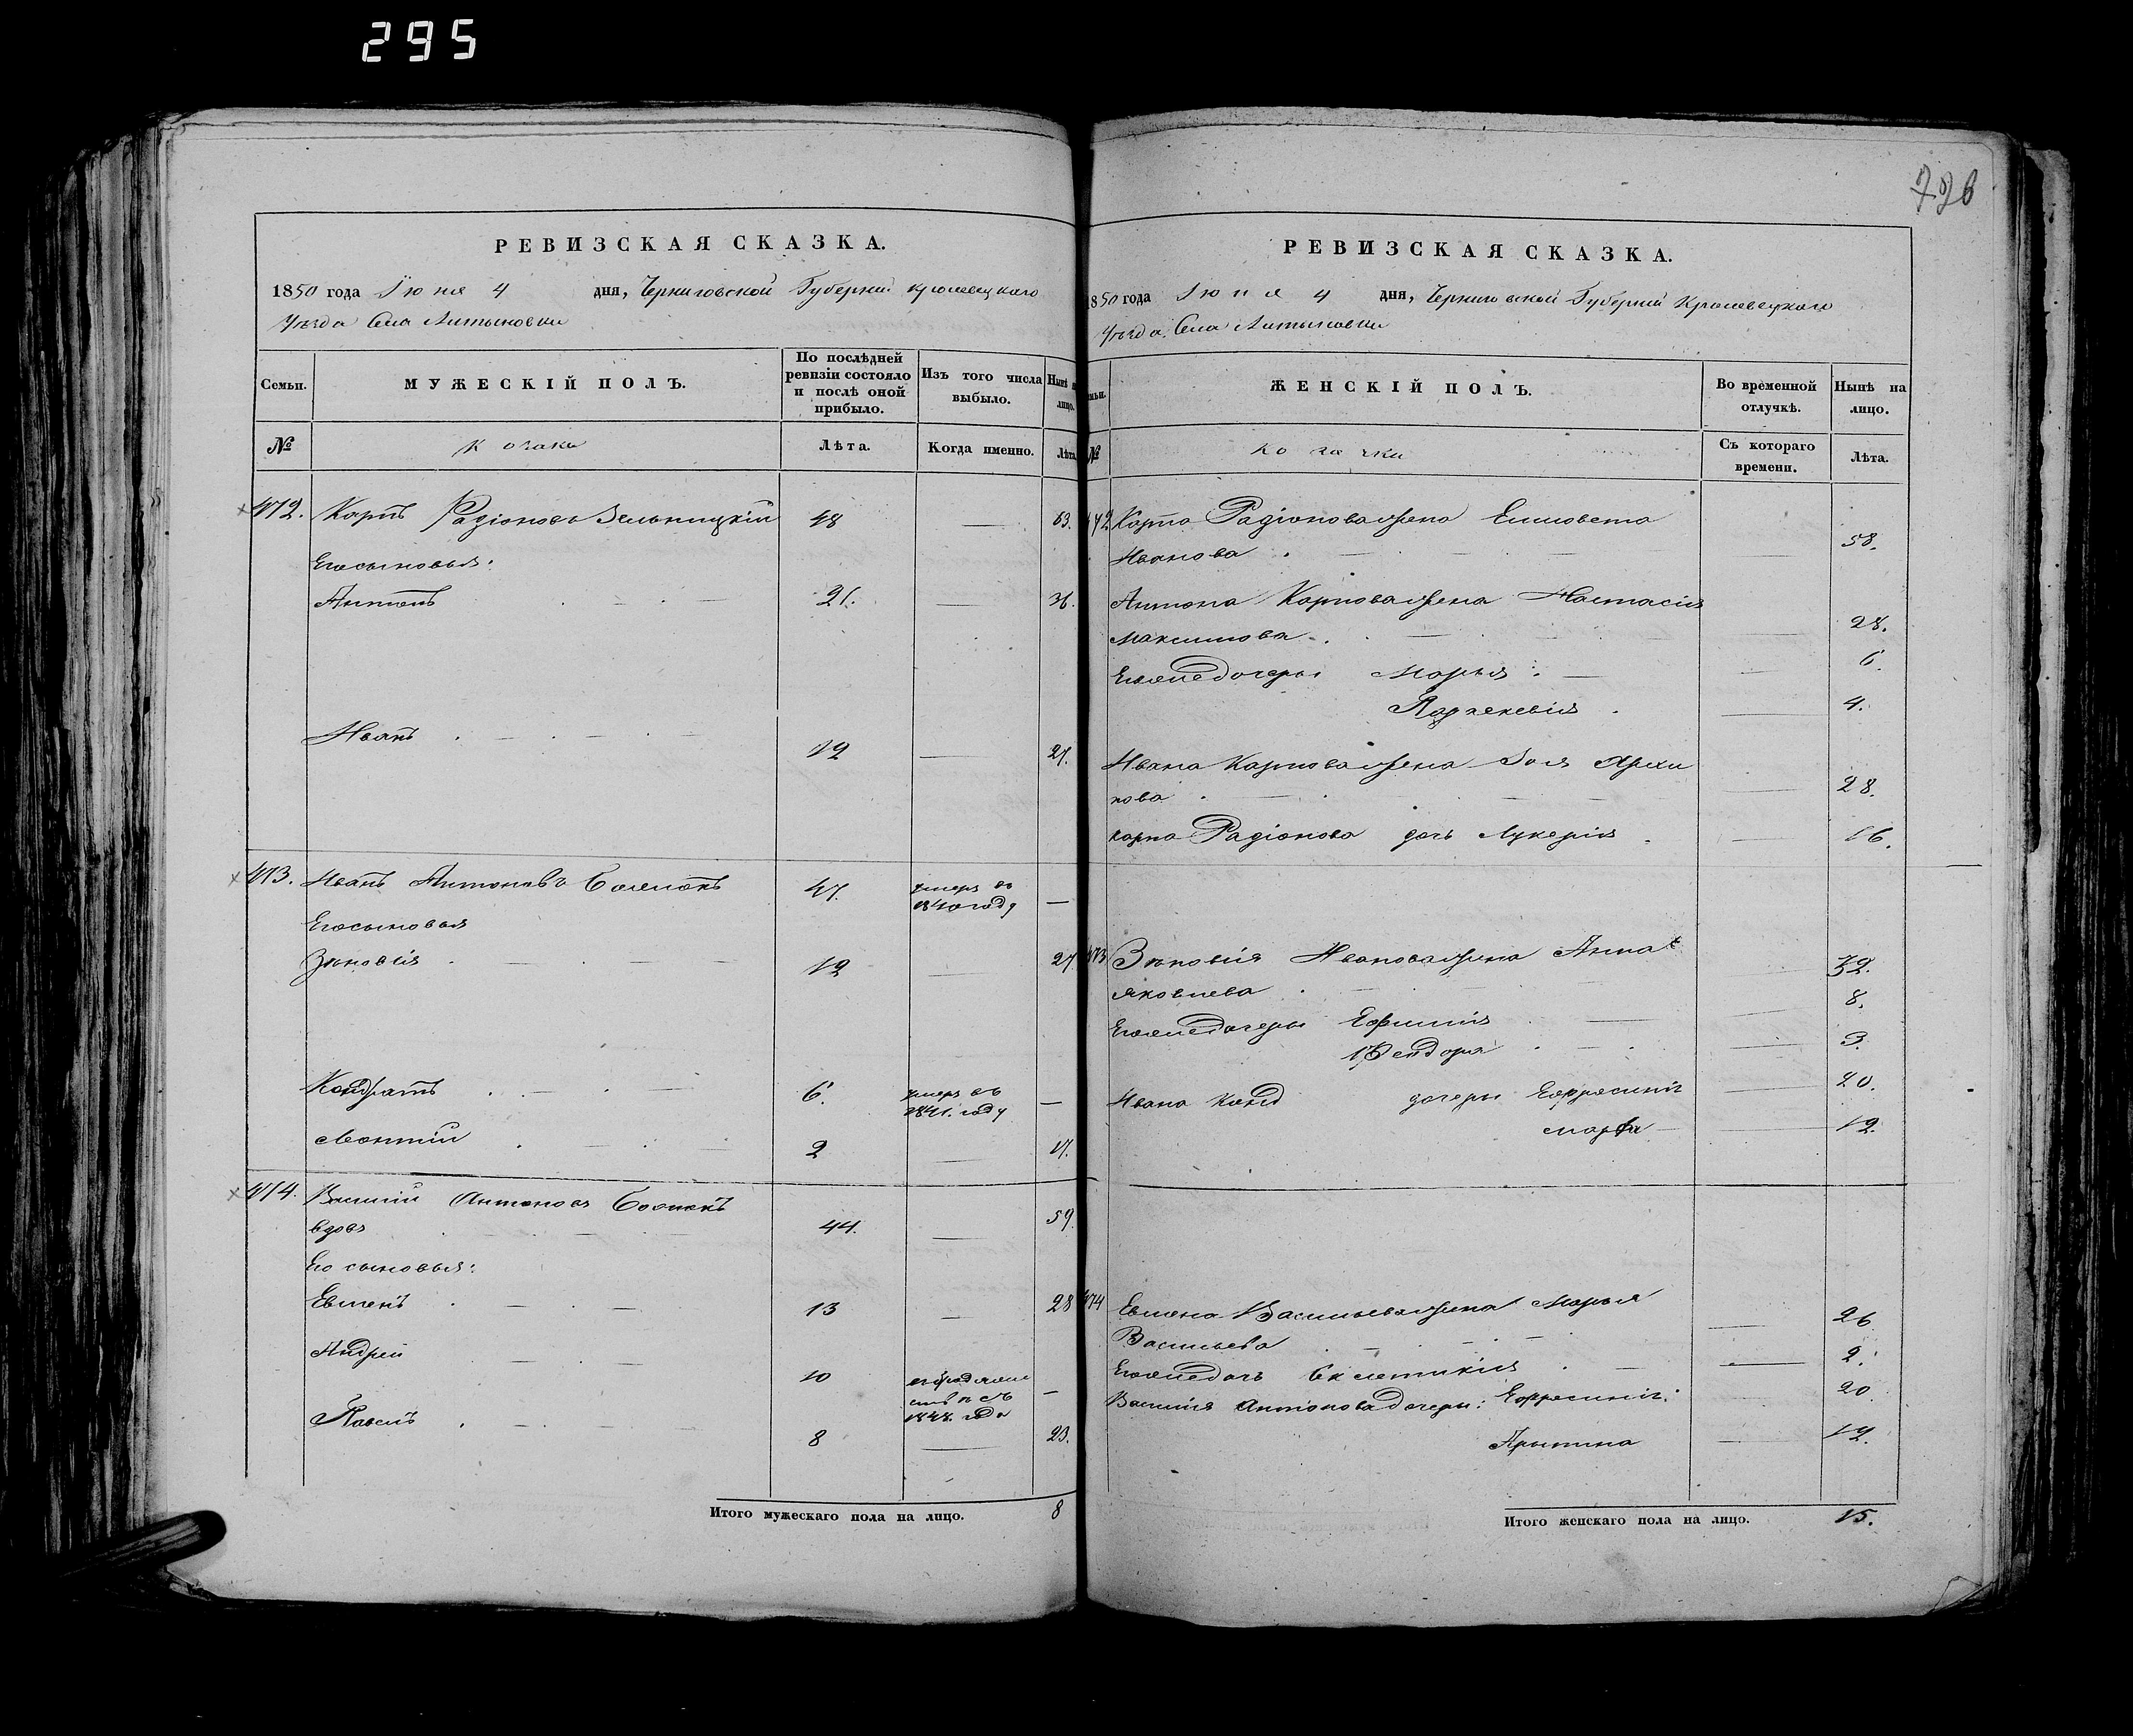 295
726
РЕВИЗСКАЯ СКАЗКА.
1850 года Іюня 4 дня, Черниговской Губерніи Кролевецкого
Уѣзда Села Литвиновки
Семьи.
МУЖЕСКІЙ ПОЛЪ.
По послѣдней ревизіи состояло и послѣ оной прибыло.
Изъ того числа выбыло.
Нынѣ на лицо.
№
Козаки
Лѣта.
Когда именно.
Лѣта.
472. Карпъ Радіоновъ Зельницкій 48 — 63.
Его сыновья:
Антонъ 21. — 36.
Иванъ 12 — 27.
473. Иванъ Антоновъ 47. умеръ въ 1840 году —
Его сыновья
Зѣновія 12 — 27
Кондратъ 6. умеръ въ 1841. году —
Леонтій 2 — 17.
474. Василій Антоновъ
вдовъ 44. — 59.
Его сыновья:
Евменъ 13 — 28
Андрей 10 1848 года —
Павелъ 8 — 23.
Итого мужескаго пола на лицо. 8
РЕВИЗСКАЯ СКАЗКА.
1850 года Іюня 4 дня, Черниговской Губерніи Кролевецкого
Уѣзда. Села Литвиновки
ЖЕНСКІЙ ПОЛЪ.
Во временной отлучкѣ.
Нынѣ на лицо.
№
Козачки
Съ котораго времени.
Лѣта.
472 Карпа Радіонова жена Елисовета
Иванова — 58.
Антона Карпова жена Настасія
Максимова — 28.
Его же дочеры Марья — 6.
Парскевія — 4.
Ивана Карпова жена Зоя Архи
пова — 28.
Карпа Радіонова дочь Лукерія — 16.
473 Зѣновія Иванова жена Анна
Яковлева 32.
Его же дочеры Ефимія — 8.
Феодора — 3.
Ивана дочеры Ефросинія — 20.
Марфа — 12.
474 Евмена Васильева жена Марья
Васильева — 26
Его же дочь — 2.
Василія Антонова дочеры: Ефросинія: 20
Ирынина — 12.
Итого женскаго пола на лицо. 15.